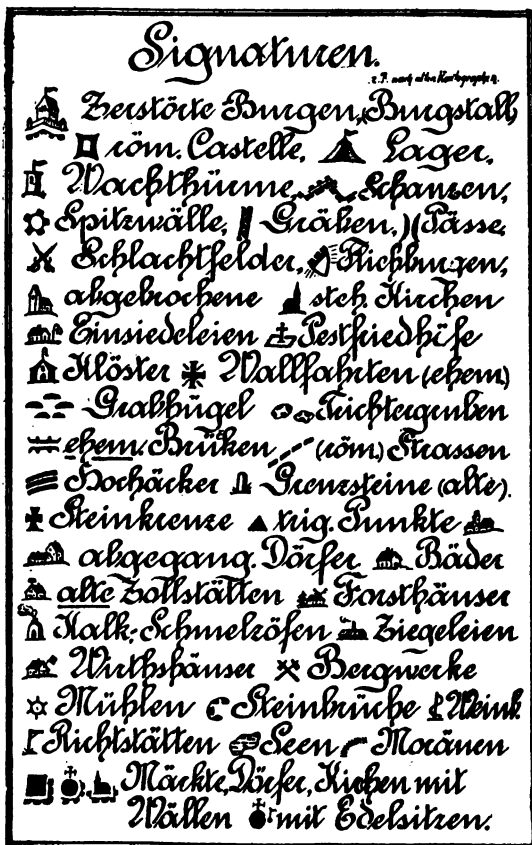 Signaturen.
z. T. nach alten Kartographen.
Zerstörte Burgen, Burgstall,
röm. Castelle, Lager,
Wachthürme, Schanzen,
Spitzwälle, Gräben, )( Pässe,
Schlachtfelder, Fliehburgen,
abgebrochene steh. Kirchen
Einsiedeleien Pestfriedhöfe
Klöster Wallfahrten (ehem)
Grabhügel Trichtergruben
ehem. Brüken (röm.) Strassen
Hochäcker Grenzsteine (alte).
Steinkreuze trig. Punkte
abgegang. Dörfer Bäder
alte Zollstätten Forsthäuser
Kalk-, Schmelzöfen Ziegeleien
Wirthshäuser Bergwerke
Mühlen Steinbrüche Weink
Richtstätten Seen Moränen
Märkte, Dörfer, Kirchen mit
Wällen mit Edelsitzen.